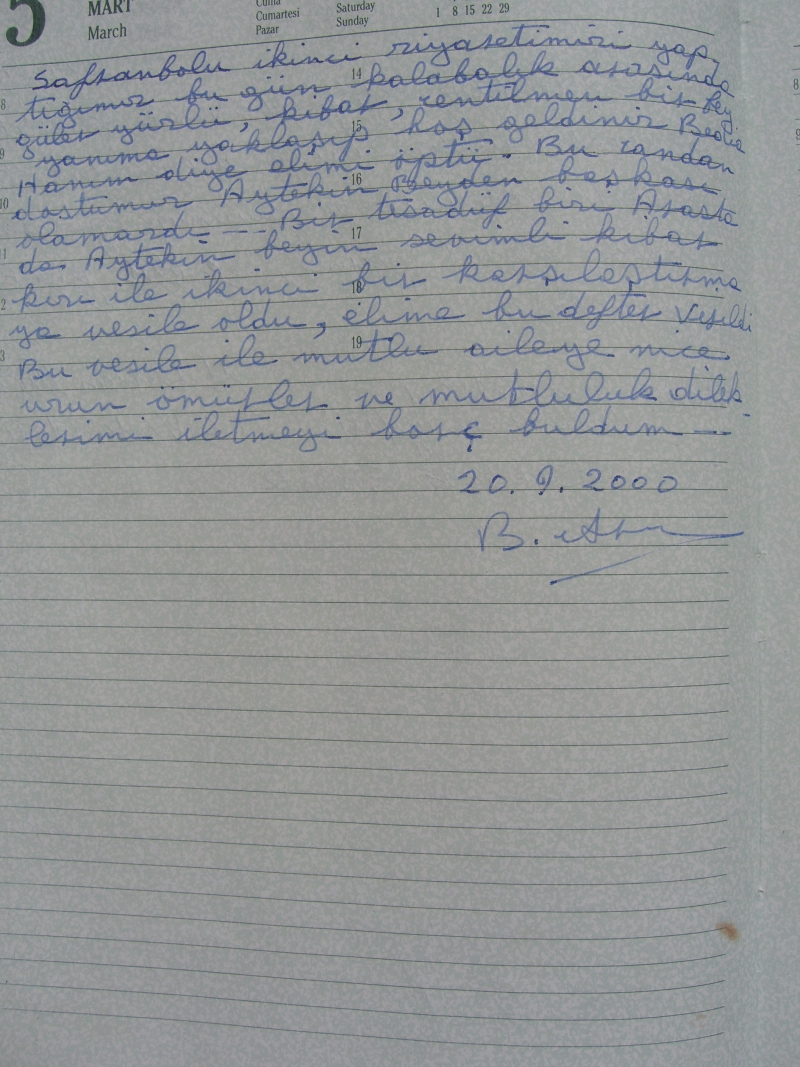 5 MART Cuma Saturday 1 8 15 22 29
March Cumartesi Sunday
Pazar
Safranbolu ikinci ziyaretimizi yap
tığımız bu gün kalabalık arasında
güler yüzlü, kibar, centilmen bir bey
yanıma yaklaşıp hoş geldiniz Bedia
Hanım diye elimi öptü. Bu candan
dostumuz Aytekin Beyden başkası
olamazdı --- Bir tesadüf bizi Arasta
da Aytekin beyin sevimli kibar
kızı ile ikinci bir karşılaştırma
ya vesile oldu, elime bu defter verildi
Bu vesile ile mutlu aileye nice
uzun ömürler ve mutluluk dilek-
lerimi iletmeyi borç buldum ---
20. 9. 2000
B.
14
15
16
17
18
19
8
9
10
11
12
13